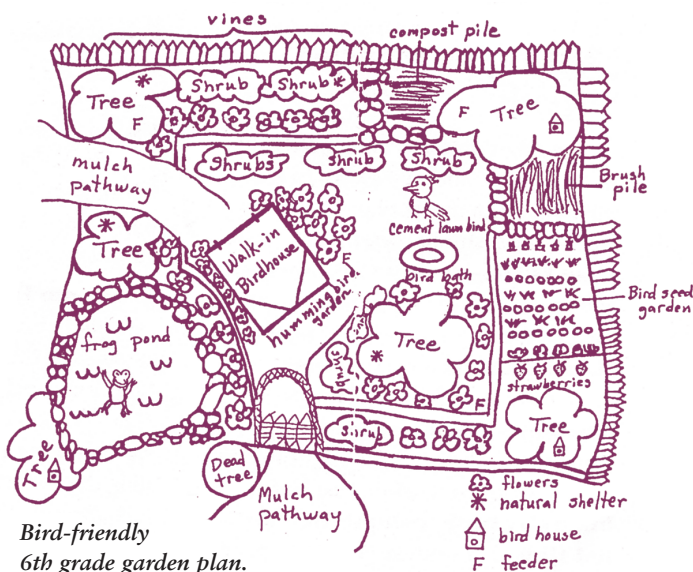 vines
compost pile
Tree
F
Shrub
Shrub
F
Tree
mulch
pathway
Shrubs
Shrub
Shrub
Brush
pile
cement lawn bird
Walk-in
Birdhouse
F
Tree
bird bath
hummingbird
garden
Bird seed
garden
frog pond
Tree
strawberries
F
Tree
Shrub
Tree
Dead
tree
Mulch
pathway
flowers
natural shelter
bird house
F feeder
Bird-friendly
6th grade garden plan.